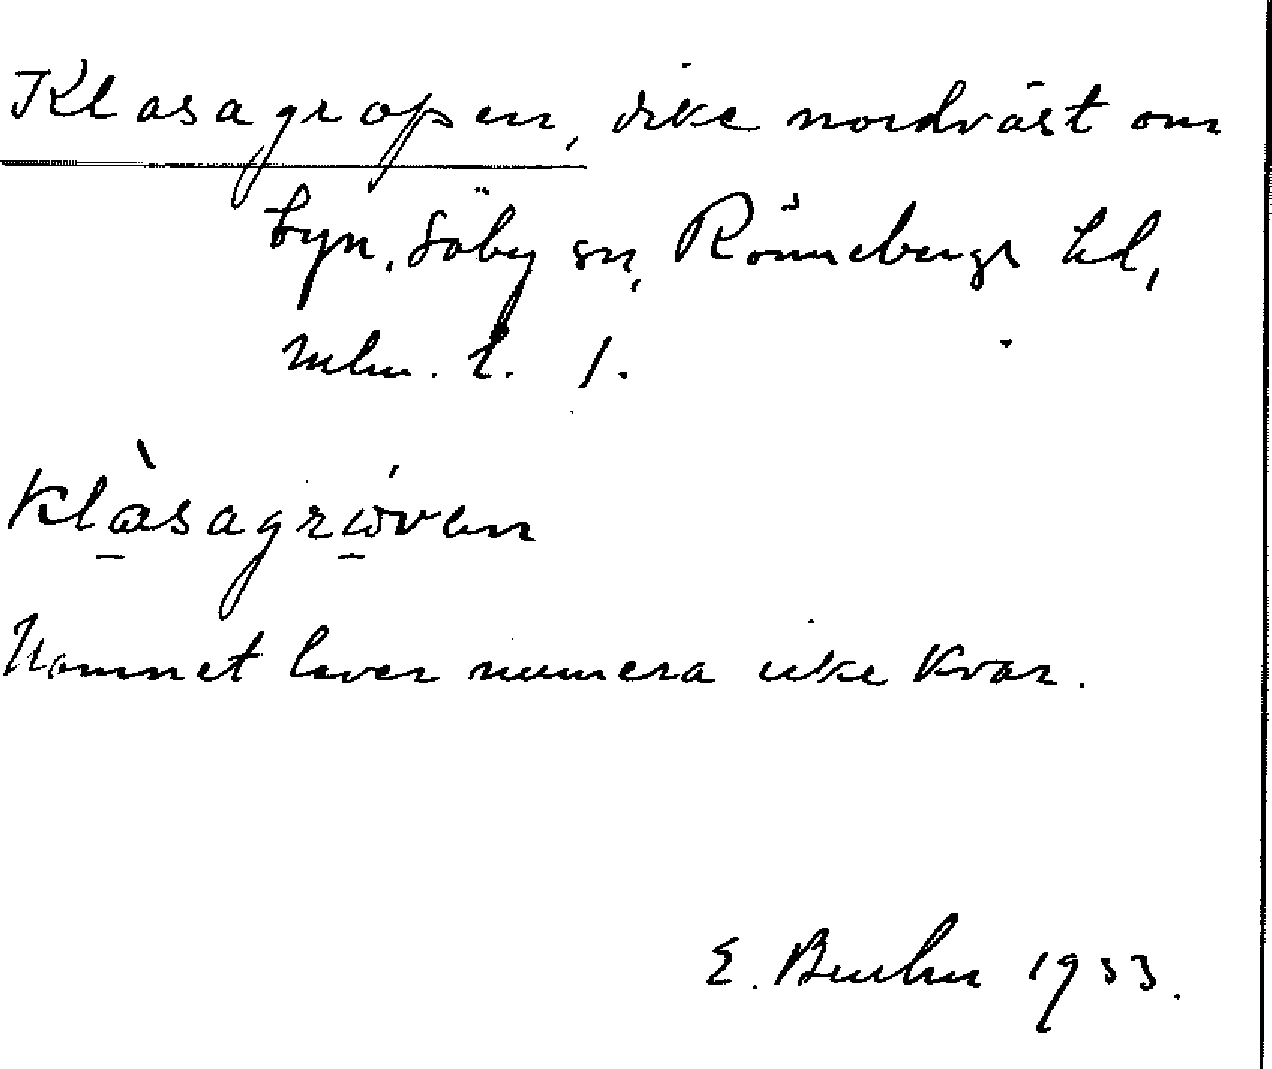 Klasagropen, dike nordväst om
byn, Säby sn, Rönnebergs hd,
mlm. l. 1.
klàsagrǫ́ven
Namnet lever numera icke kvar.
E. Buhn 1933.